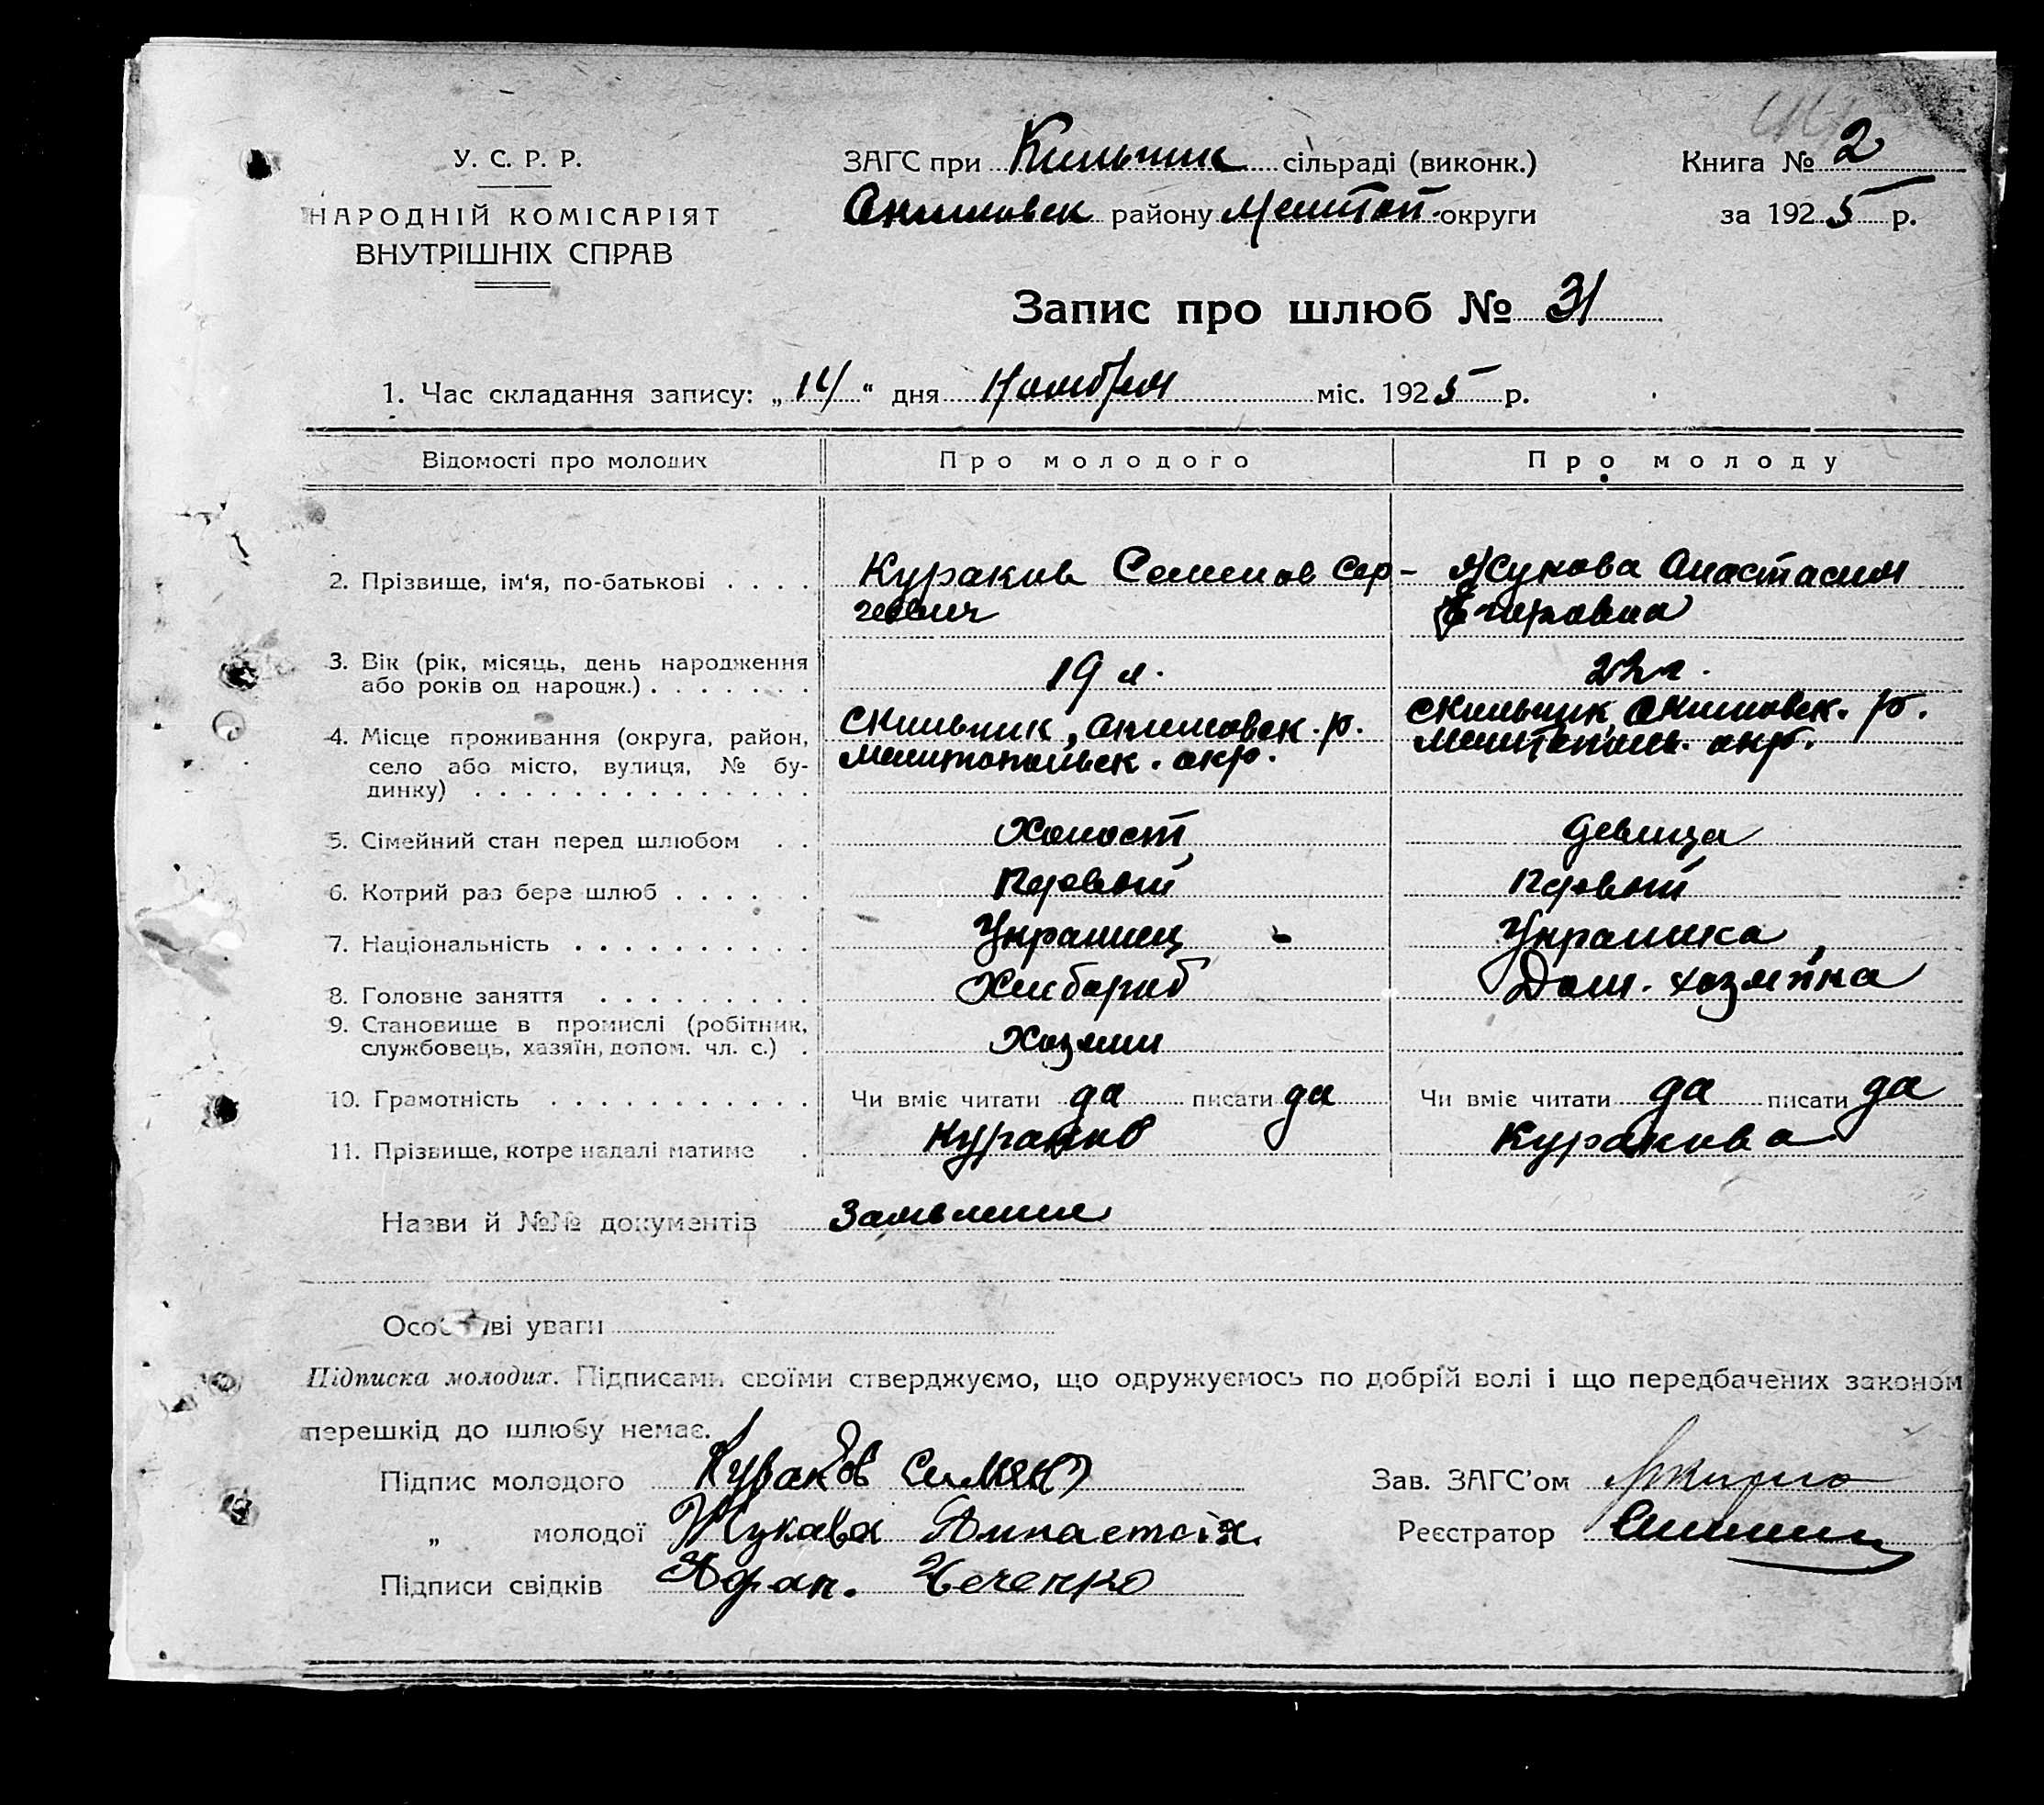 У. С. Р. Р.
НАРОДНІЙ КОМІСАРІЯТ
ВНУТРІШНІХ СПРАВ
ЗАГС при Кильчик сільраді (виконк.)
Акимовек району Мелитоп. округи
Книга № 2
за 1925 р.
Запис про шлюб № 31
1. Час складання запису: „14“ дня Ноября міс. 1925 р.
Відомості про молодих
Про молодого
Про молоду
2. Прізвище, ім‘я, по-батькові . . . .
Кураков Семион Сер-
геевич
Жукова Анастасия
Егоровна
3. Вік (рік, місяць, день народження
або років од народж.) . . . . . . .
19 л.
22 г.
4. Місце проживання (округа, район,
село або місто, вулиця, № бу-
динку) . . . . . . . . . . . . . .
с Кильчик, Акимовек. р.
Мелитопольск. окр.
с Кильчик, Акимовек. р.
Мелитополь. окр.
5. Сімейний стан перед шлюбом . .
Холост
девица
6. Котрий раз бере шлюб . . . . . .
Первый
Первый
7. Національність . . . . . . . . . .
Украинец
Украинка
8. Головне заняття . . . . . . . . .
Хлебороб
Дом. хозяйка
9. Становище в промислі (робітник,
службовець, хазяїн, допом. чл. с.) .
Хозяин
10. Грамотність . . . . . . . . . . .
Чи вміє читати да писати да
Чи вміє читати да писати да
11. Прізвище, котре надалі матиме .
Кураков
Куракова
Назви й №№ документів Заявление
Особливі уваги
Підписка молодих. Підписами своїми стверджуємо, що одружуємось по добрій волі і що передбачених законом
перешкід до шлюбу немає.
Підпис молодого Кураков Симян
Зав. ЗАГС’ом
„ молодої Жукава Аннастаія
Реєстратор
Підписи свідків Афан. Чеченко